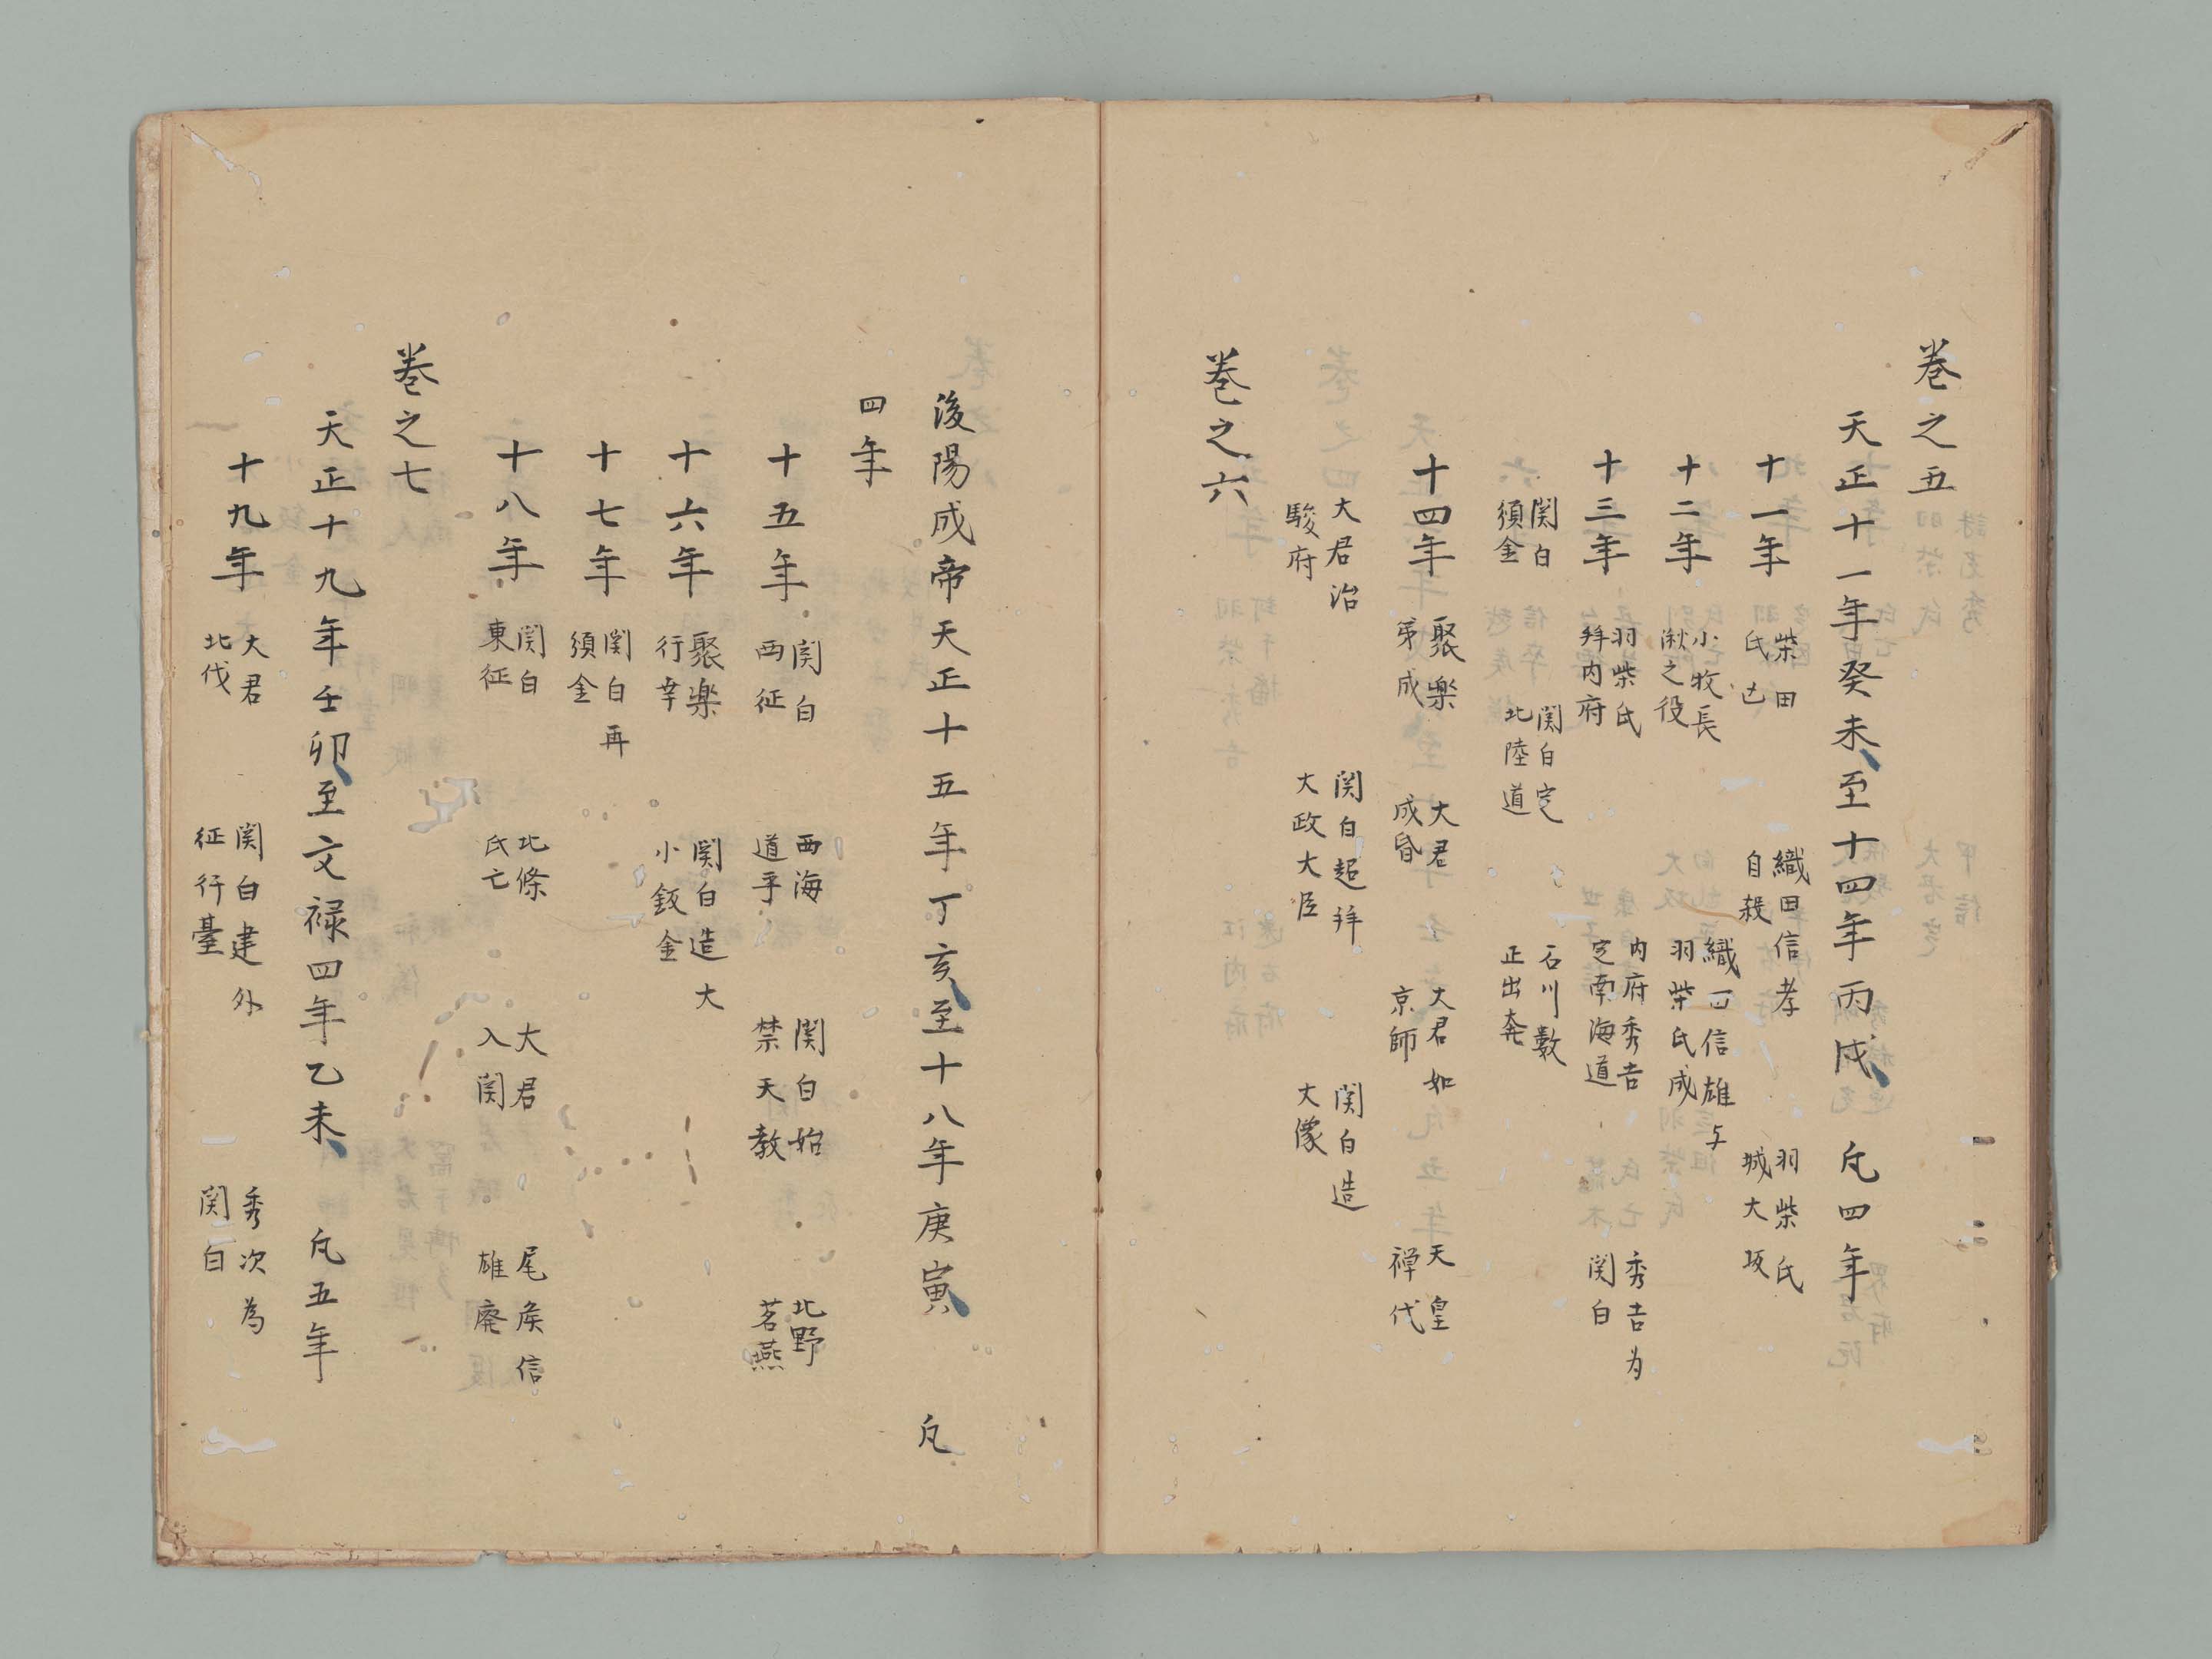 巻之五
天正十一年癸未至十四年丙戌 凢四年
十一年 柴田氏亡 織田信孝自殺 羽柴氏城大坂
十二年 小牧長湫之役 織田信雄与羽柴氏成
十三年 羽柴氏拜内府 内府秀吉定南海道 秀吉为関白
関白須金 関白定北陸道 石川數正出奔
十四年 聚樂第成 大君成昏 大君如京師 天皇禅代
大君治駿府 関白超拜大政大臣 関白造大像
巻之六
後陽成帝天正十五年丁亥至十八年庚寅 凢
四年
十五年 関白西征 西海道平 関白始禁天教 北野茗燕
十六年 聚楽行幸 関白造大小鈑金
十七年 関白再須金
十八年 関白東征 北條氏亡 大君入関 尾侯信雄廃
巻之七
天正十九年壬卯至文禄四年乙未 凢五年
十九年 大君北伐 関白建外征行臺 秀次為関白